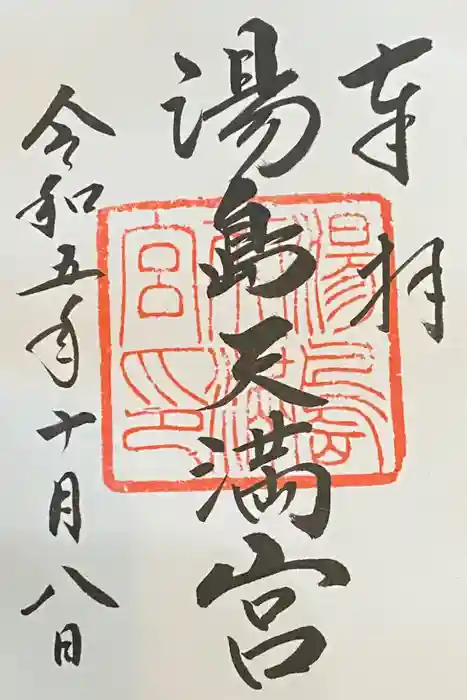 奉拝
湯島天満宮
湯島天満宮之印
令和五年十月八日